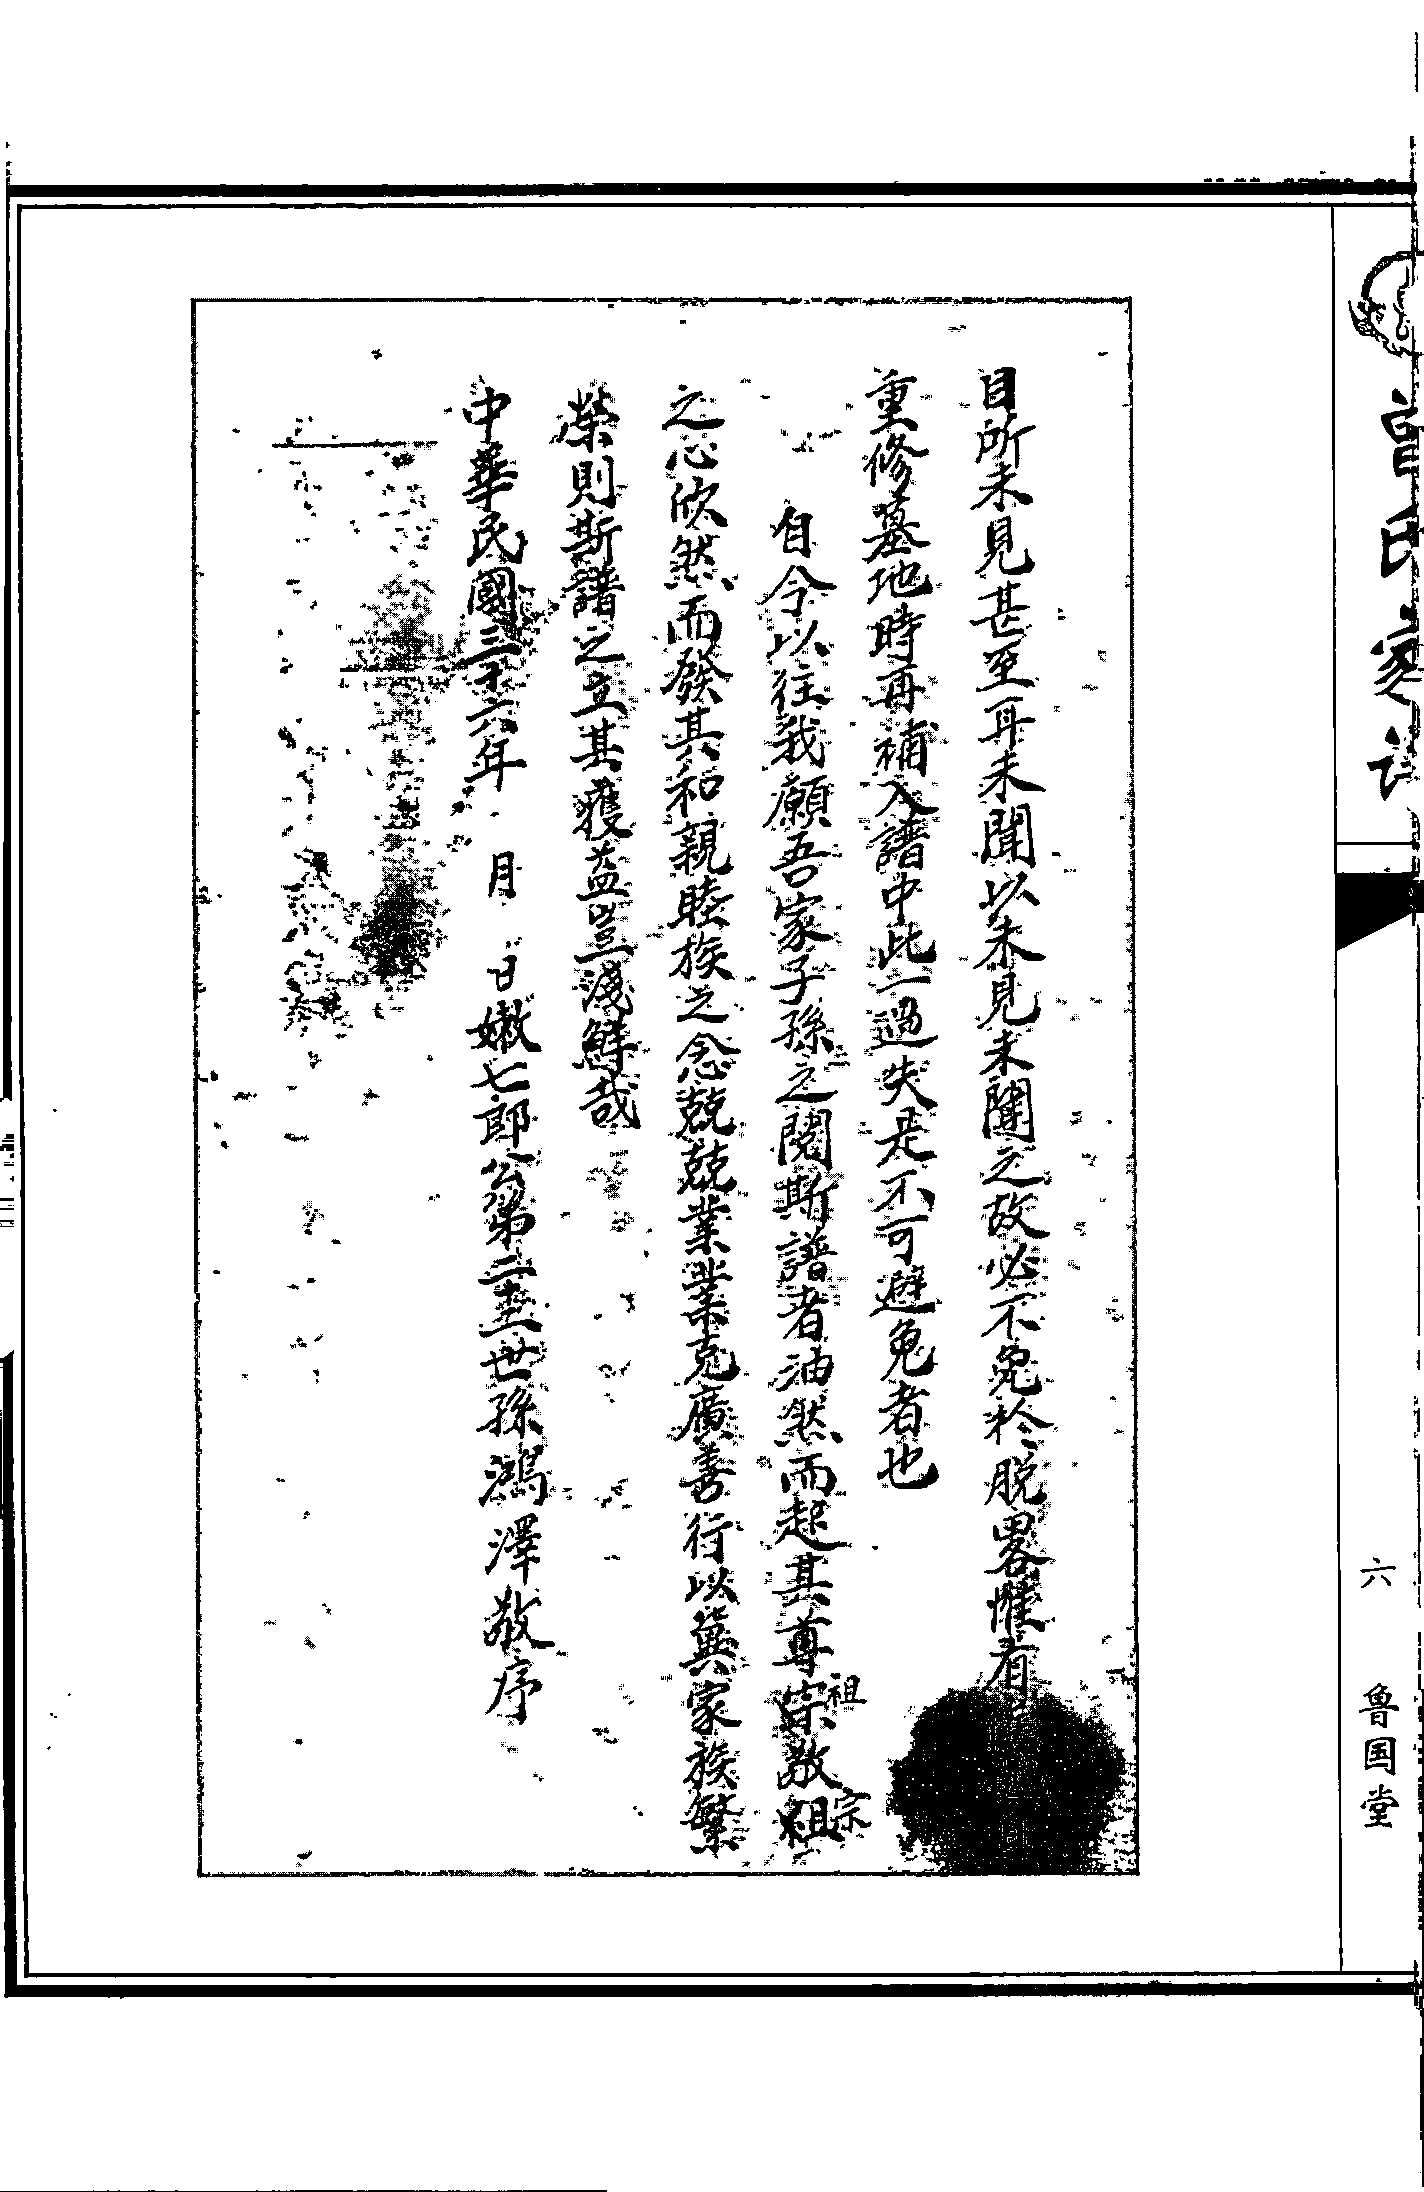 曾氏家譜
六
魯国堂
目所未見甚至耳未聞以未見未聞之故必不免於脫畧惟有
重修墓地時再補入譜中此一過失是不可避免者也
自今以往我願吾家子孫之閱斯譜者油然而起其尊宗敬祖
祖
宗
之心欣然而發其和親睦族之念兢兢業業克廣善行以冀家族繁
榮則斯譜之立其獲益豈淺鮮哉
中華民國三十六年 月 日嫩七郎公第二十五世孫鴻澤敬序